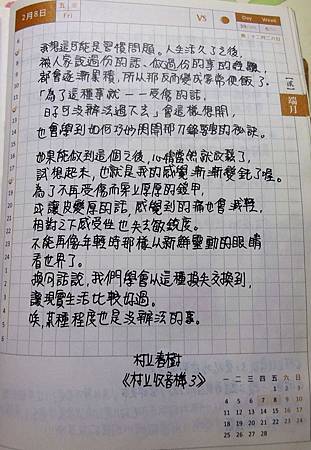 2月8日
五
Fri
VS
Day
Week
十二月二八日
【貳】
端月
我想這可能是習慣問題。人生活久了之後,
被人家說過份的話、做過份的事的經驗,
都會逐漸累積,所以那反而變成家常便飯了。
「為了這種事就一一受傷的話,
日子可沒辦法過下去」會這樣想開,
也會學到如何巧妙閃開那刀鋒的秘訣。
如果能做到這個之後,心情當然就收發了,
試想起來,也就是我的感覺漸漸變鈍了喔。
為了不再受傷而穿上厚厚的鎧甲,
或讓皮變厚的話,感覺到的痛也會減輕,
相對之下感受性也失去敏銳度。
不能再像年輕時那樣以新鮮靈動的眼睛
看世界了。
換句話說,我們學會以這種損失交換到,
讓現實生活比較好過。
唉,某種程度也是沒辦法的事。
村上春樹
《村上收音機3》
一 二 三 四 五 六 日
1 2 3
4 5 6 7 8 9 10
11 12 13 14 15 16 17
18 19 20 21 22 23 24
25 26 27 28